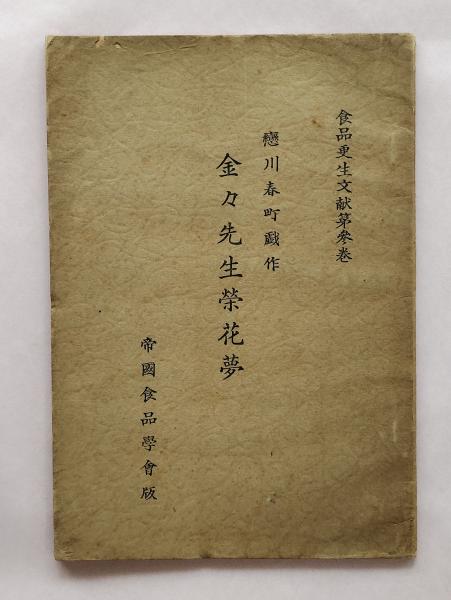 食品更生文献第參巻
戀川春町戯作
金々先生榮花夢
帝國食品學會版